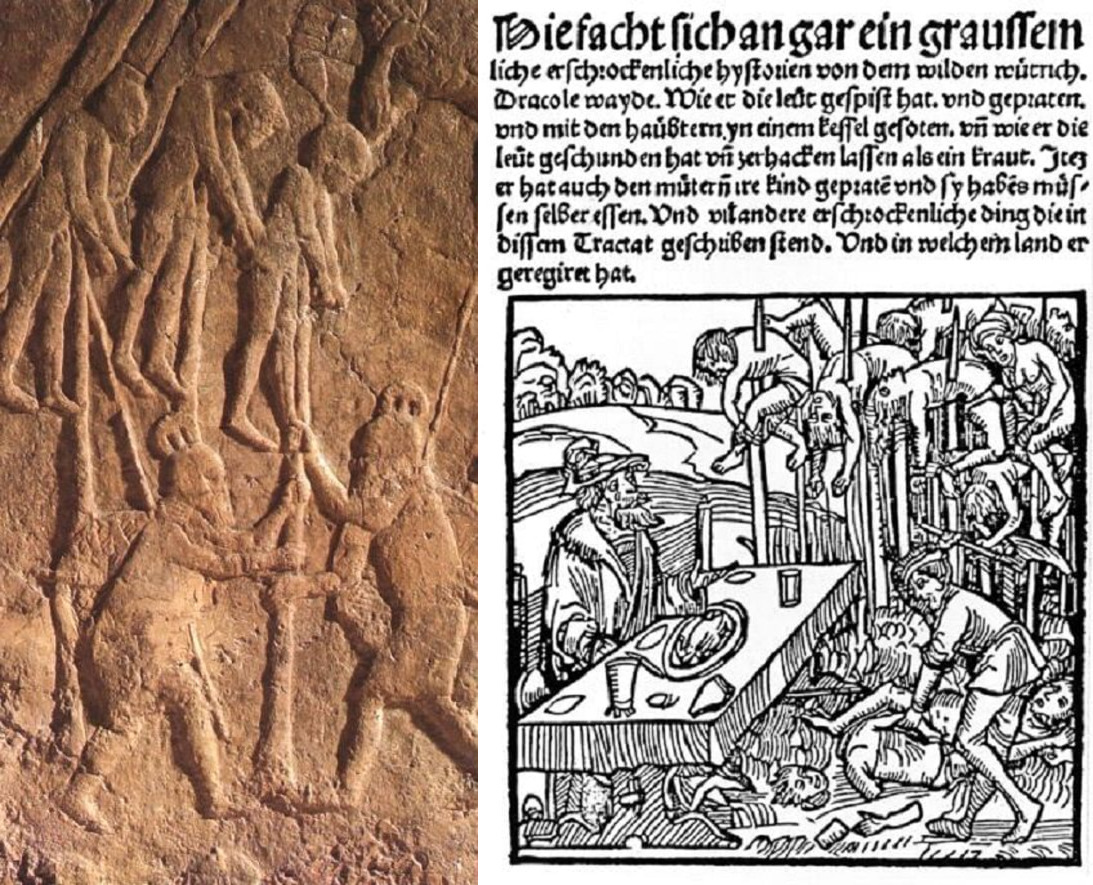 Hie facht sich an gar ein graussem
liche erschrockenliche hystorien von dem wilden wütrich.
Dracole wayde. Wie er die leüt gespist hat. vnd gepraten.
vnd mit den haübtern yn einem kessel gesoten. vñ wie er die
leüt geschunden hat vñ zerhacken lassen als ein kraut. Itez
er hat auch den mütern̄ ire kind gepratē vnd sy habēs müs-
sen selber essen. Vnd vil andere erschrockenliche ding die in
dissem Tractat geschriben stend. Vnd in welchem land er
geregiret hat.